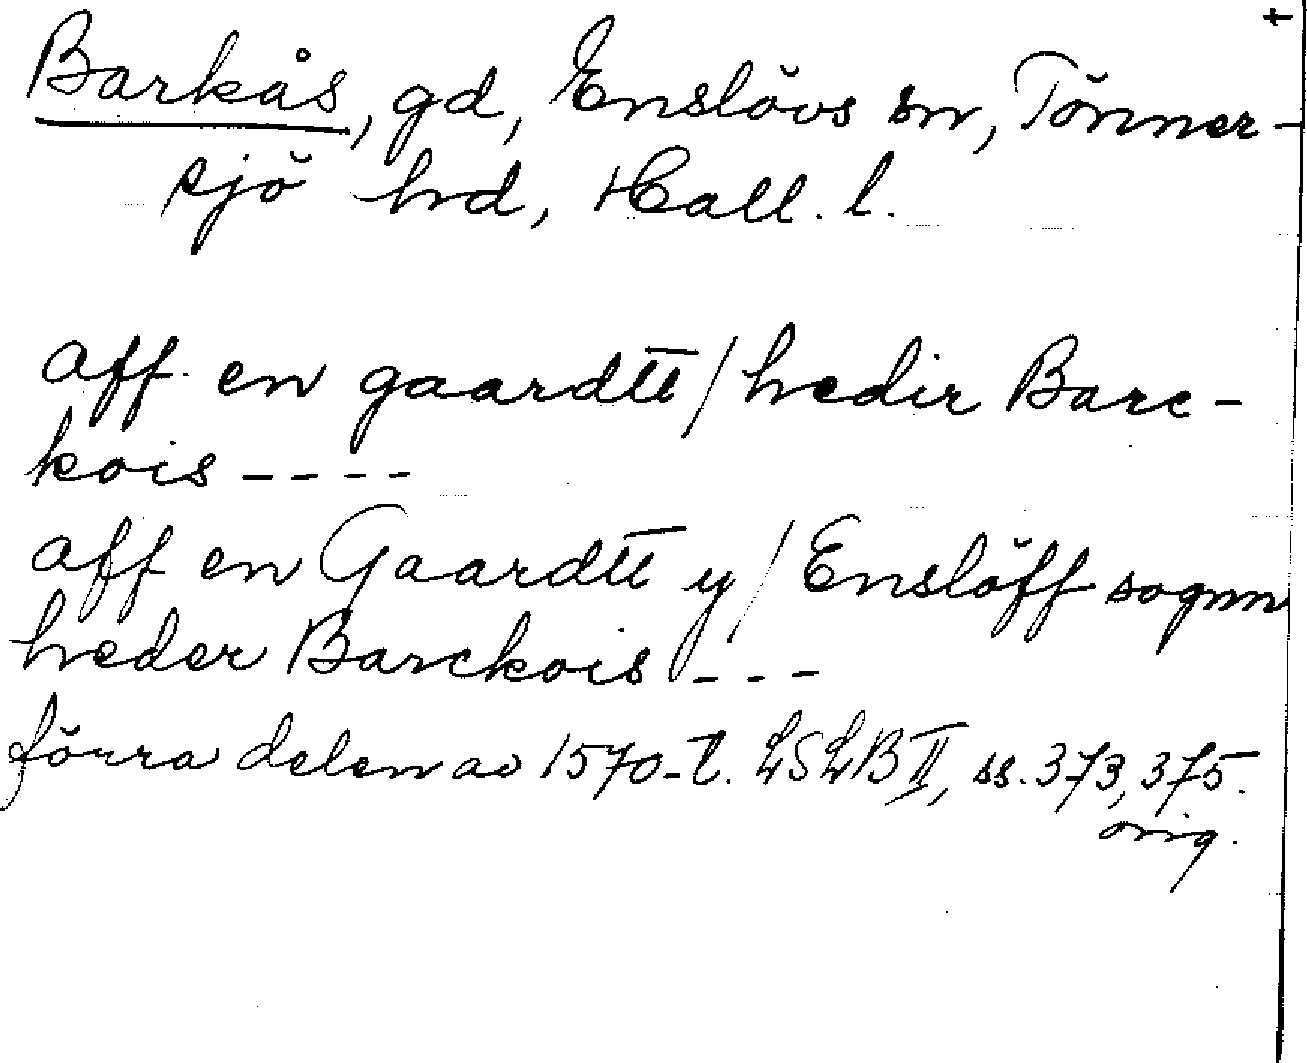 Barkås, gd, Enslövs sn, Tönner-
sjö hrd, Hall. l.
aff en gaardtt / hedir Barc-
kois - - - -
aff en Gaardtt y / Enslöff sognn
heder Barckois - - -
förra delen av 1570-t. LSLB II, ss. 373, 375.
orig.